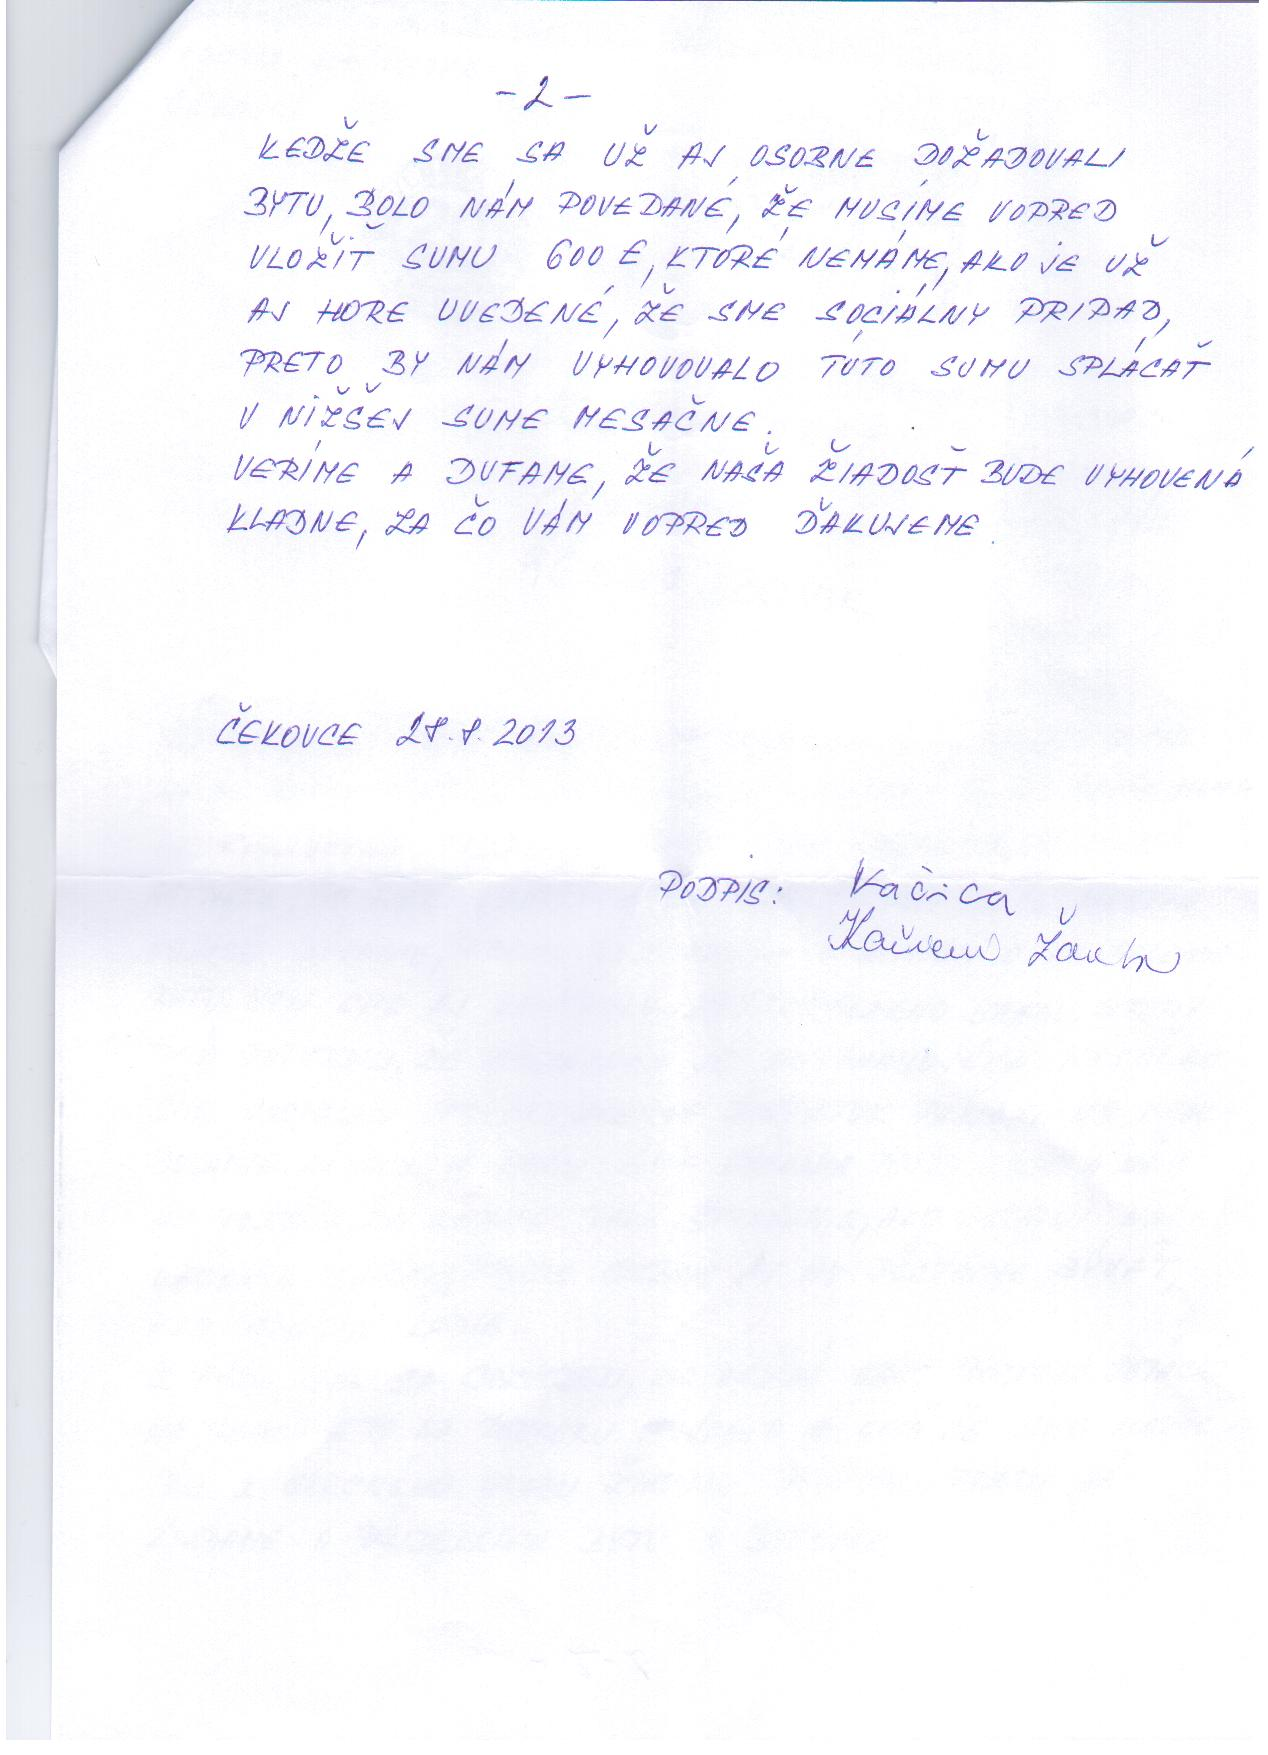 - 2 -
KEDŽE SME SA UŽ AJ OSOBNE DOŽADOVALI
BYTU, BOLO NÁM POVEDANÉ, ŽE MUSÍME VOPRED
VLOŽIŤ SUMU 600 €, KTORÉ NEMÁME, AKO JE UŽ
AJ HORE UVEDENÉ, ŽE SME SOCIÁLNY PRIPAD,
PRETO BY NÁM VYHOVOVALO TÚTO SUMU SPLÁCAŤ
V NIŽŠEJ SUME MESAČNE.
VERÍME A DUFAME, ŽE NAŠA ŽIADOSŤ BUDE VYHOVENÁ
KLADNE, ZA ČO VÁM VOPRED ĎAKUJEME.
ČEKOVCE 28.8.2013
PODPIS: Kačica